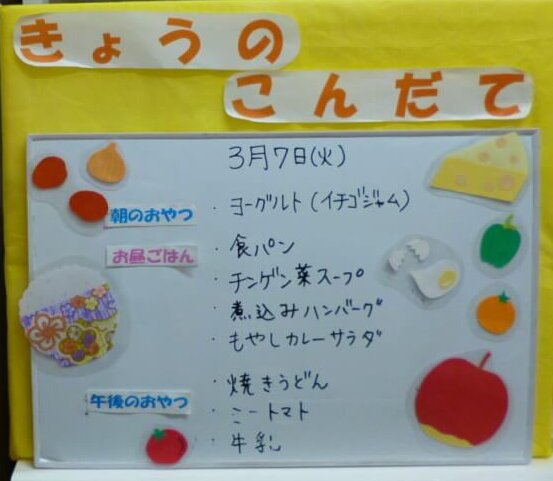 きょうの
こんだて
3月7日(火)
朝のおやつ ・ヨーグルト(イチゴジャム)
お昼ごはん ・食パン
・チンゲン菜スープ
・煮込みハンバーグ
・もやしカレーサラダ
午後のおやつ ・焼きうどん
・ミートマト
・牛乳